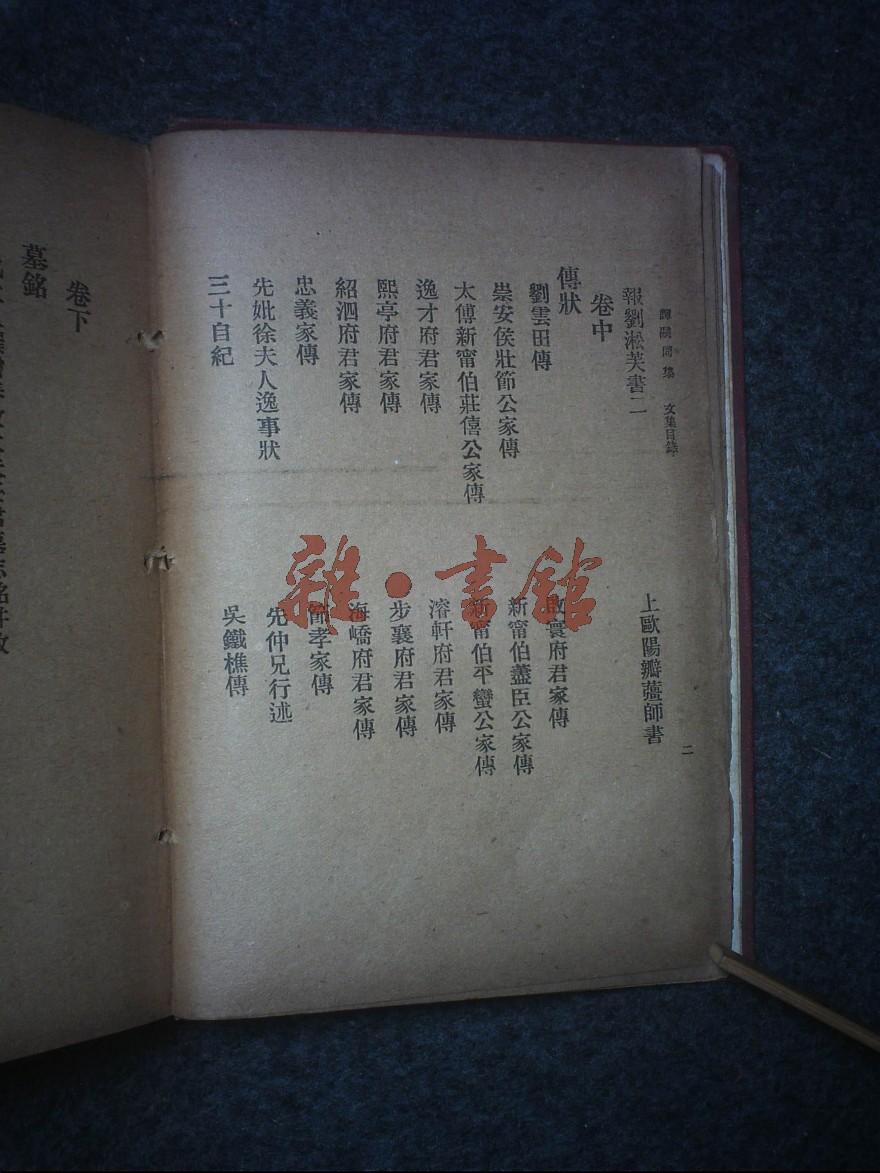 譚嗣同集 文集目錄 二
報劉淞芙書二 上歐陽瓣薑師書
卷中
傳狀
劉雲田傳 啟寰府君家傳
崇安侯壯節公家傳 新甯伯藎臣公家傳
太傅新甯伯莊僖公家傳 新甯伯平蠻公家傳
逸才府君家傳 濬軒府君家傳
熙亭府君家傳 步襄府君家傳
紹泗府君家傳 海嶠府君家傳
忠義家傳 節孝家傳
先妣徐夫人逸事狀 先仲兄行述
三十自紀 吳鐵樵傳
卷下
墓銘
雜·書館